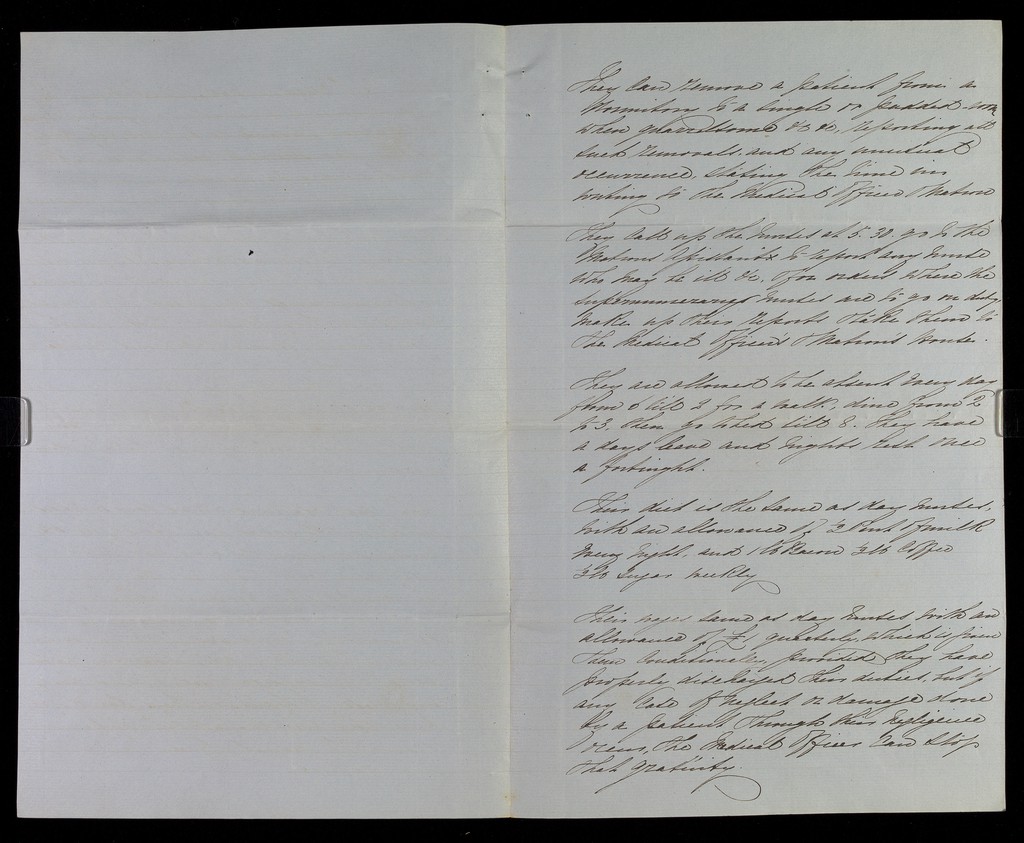 They can remove a patient from a
Dormitory to a single or padded room
when quarrelsome &c &c, reporting all
such removals, and any unusual
occurrence, stating the time in
writing to the Medical Officer & Matron
They call up the Nurses at 5.30. go to the
Matrons Assistants to report any Nurse
who may be ill &c. & for orders where the
supernumerary Nurses are to go on duty,
make up their reports & take them to
the Medical Officer's & Matrons house.
They are allowed to be absent every day
from till 2 for a walk, dine from 2
to 3, then go to bed till 8. They have
a days leave and nights rest once
a fortnight.
Their diet is the same as day nurses,
with an allowance of ½ Pint of milk
every night, and 1 lb Bacon ½lb Coffee
½lb Sugar weekly
Their wages same as day Nurses, with an
allowance of £1 quarterly, which is given
them conditionally, provided they have
properly discharged their duties, but if
any case of neglect or damage done
by a patient through their negligence
occurs, the Medical Officer can stop
that gratuity.